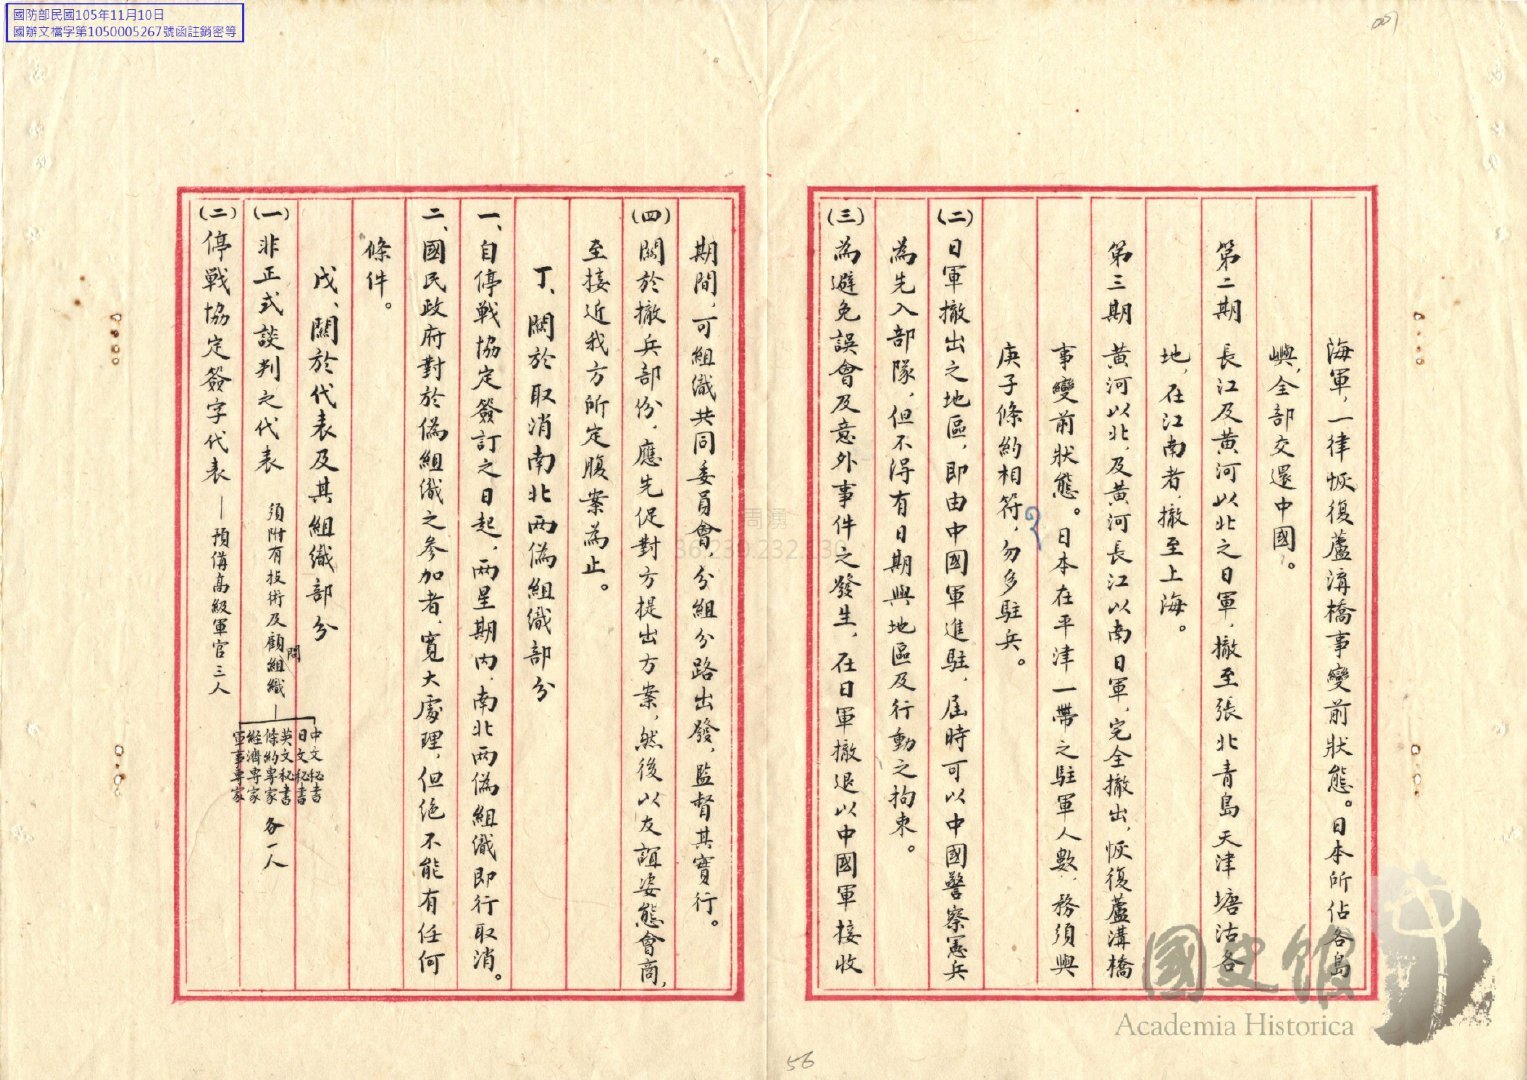 國防部民國105年11月10日
國辦文檔字第1050005267號函註銷密等
海軍，一律恢復蘆溝橋事變前狀態。日本所佔各島
嶼，全部交還中國。
第二期　長江及黃河以北之日軍，撤至張北青島天津塘沽各
地，在江南者，撤至上海。
第三期　黃河以北，及黃河長江以南日軍，完全撤出，恢復蘆溝橋
事變前狀態。日本在平津一帶之駐軍人數，務須與
庚子條約相符，勿多駐兵。
(二)日軍撤出之地區，即由中國軍進駐，屆時可以中國警察憲兵
為先入部隊，但不得有日期與地區及行動之拘束。
(三)為避免誤會及意外事件之發生，在日軍撤退以中國軍接收
期間，可組織共同委員會，分組分路出發，監督其實行。
(四)關於撤兵部份，應先促對方提出方案，然後以友誼姿態會商，
至接近我方所定腹案為止。
丁、關於取消南北兩偽組織部分
一、自停戰協定簽訂之日起，兩星期內，南北兩偽組織即行取消。
二、國民政府對於偽組織之參加者，寬大處理，但絕不能有任何
條件。
戊、關於代表及其組織部分
(一)非正式談判之代表　須附有技術及顧問組織—
中文秘書
日文秘書
英文秘書
條約專家
經濟專家
軍事專家
各一人
(二)停戰協定簽字代表—預備高級軍官三人
56
國史館
Academia Historica